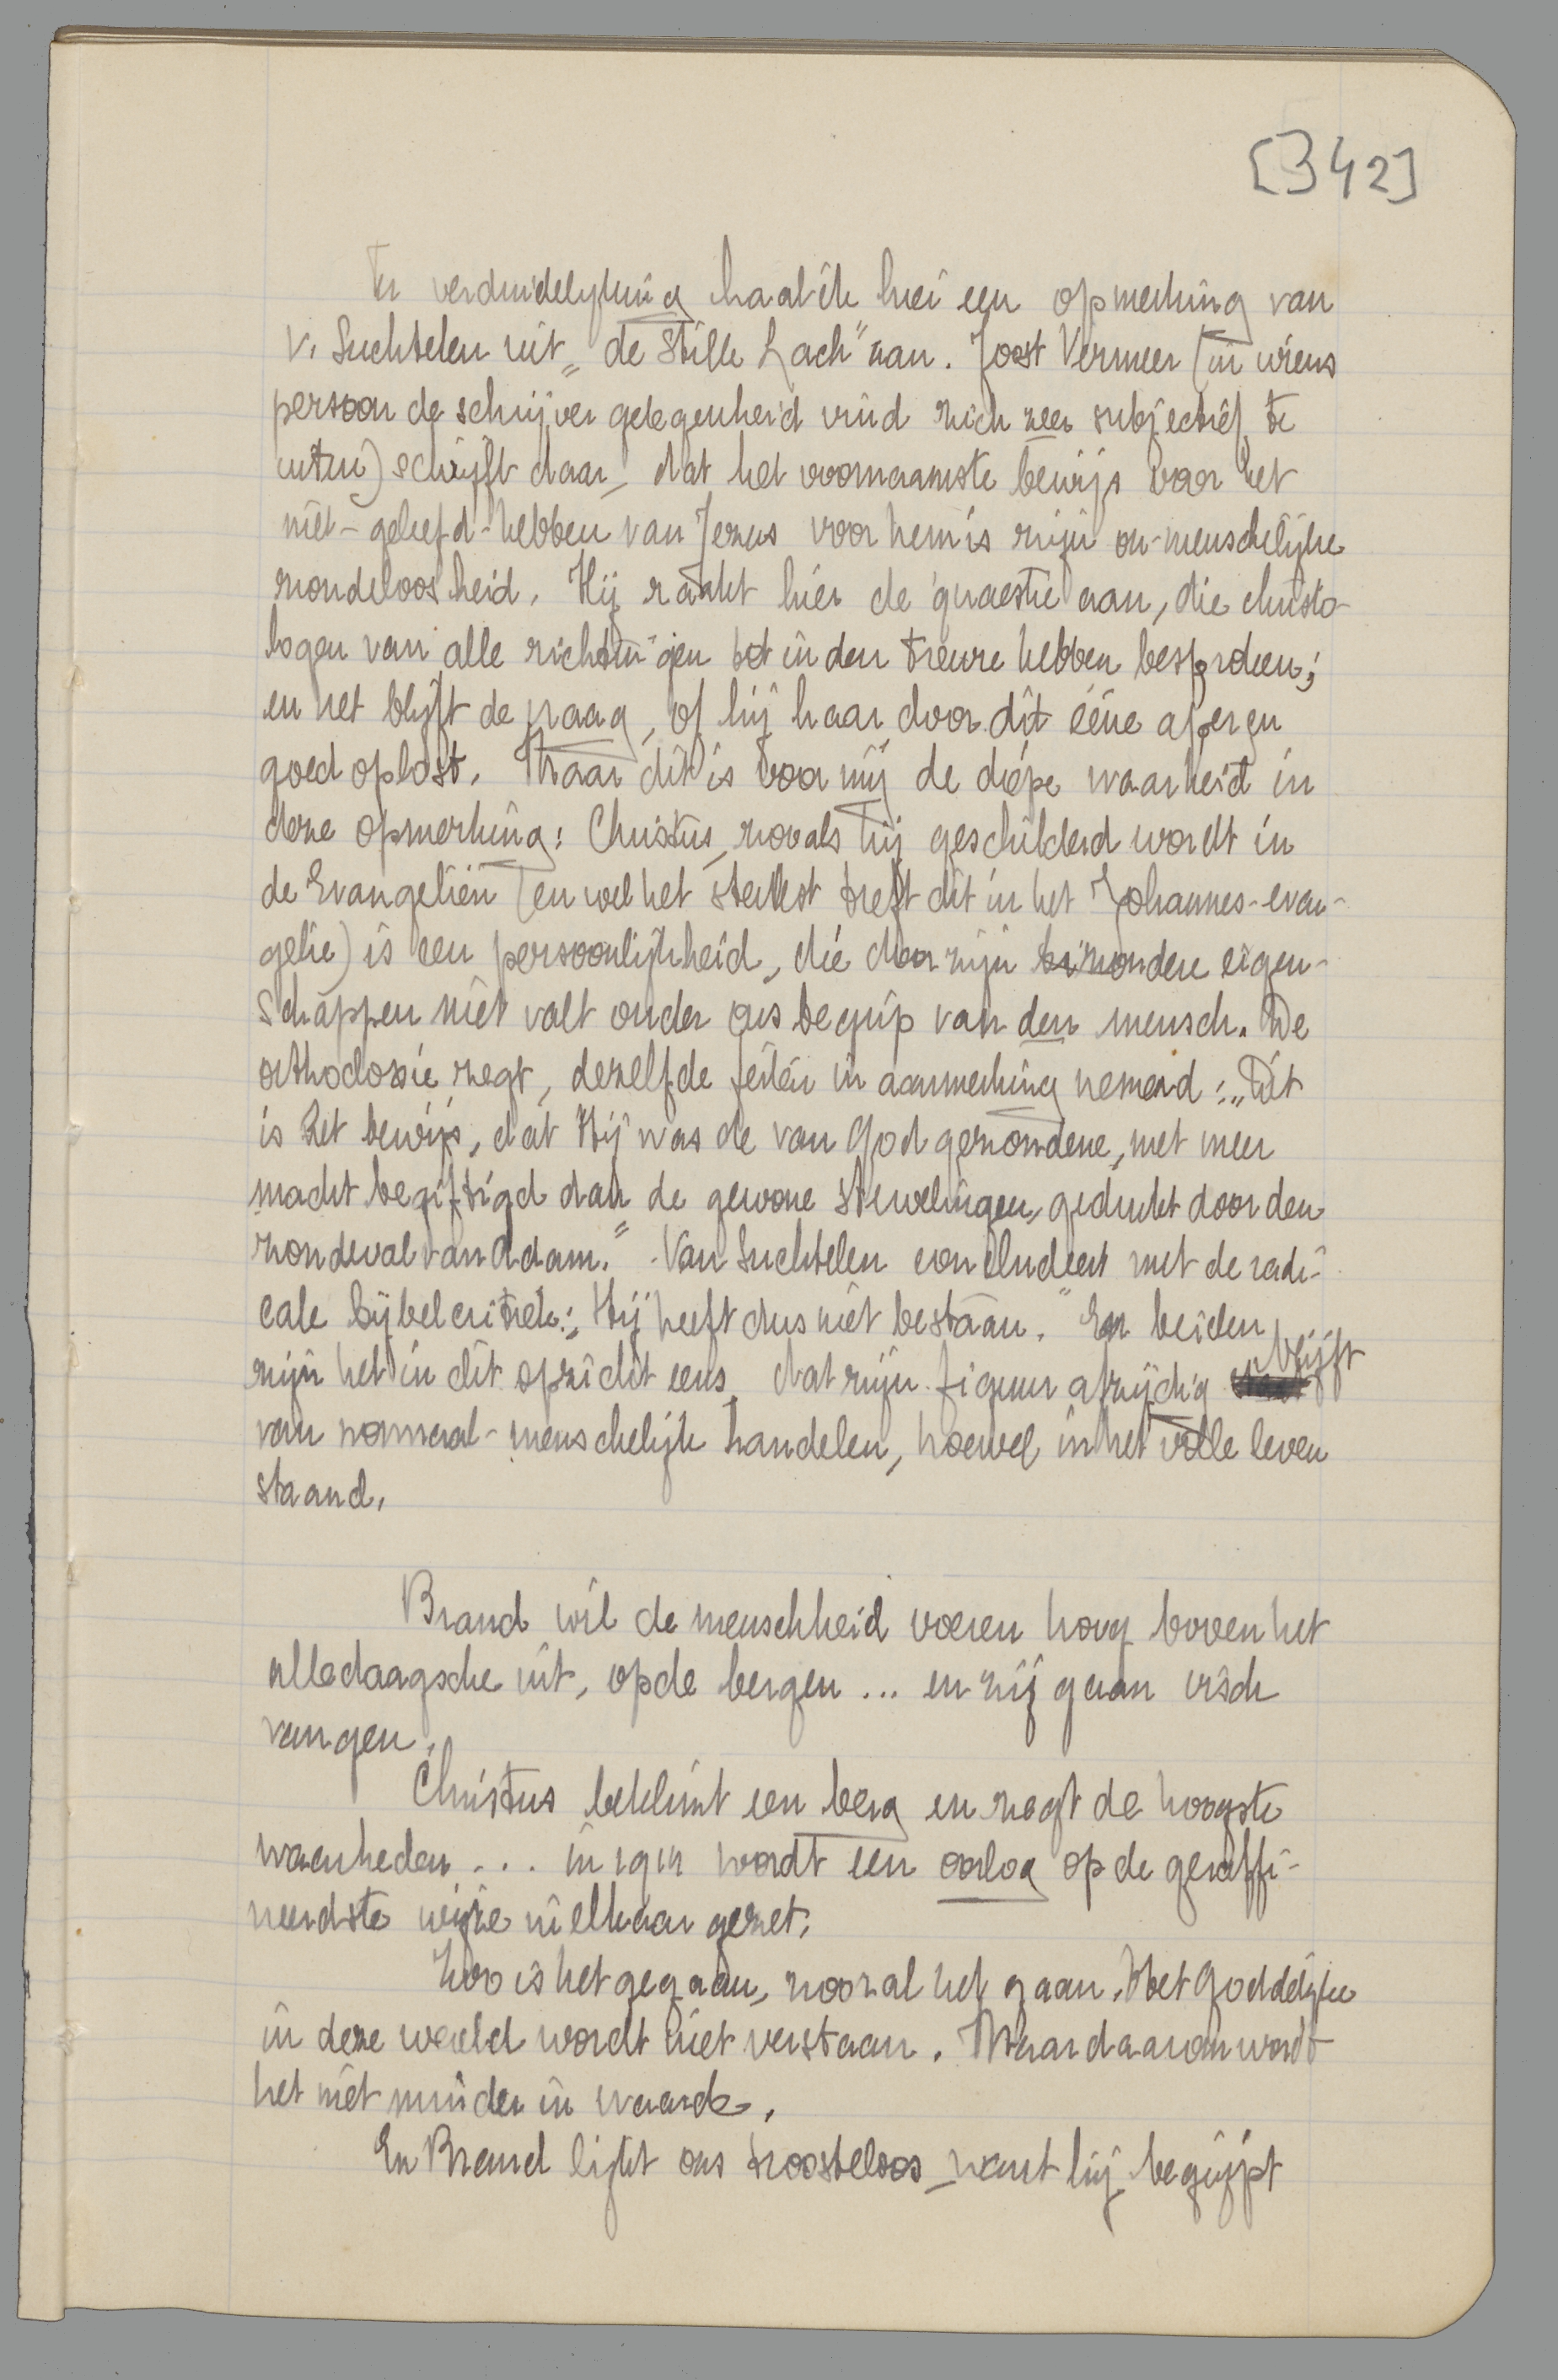 [342]
Ter verduidelijking haal ik hier een opmerking van
v. Suchtelen uit „de Stille Lach" aan. Joost Vermeer (in wiens
persoon de schrijver gelegenheid vind zich zeer subjectief te
uiten) schrijft daar, dat het voornaamste bewijs voor het
niet-geleefd-hebben van Jezus voor hem is zijn on-menschelijke
zondeloosheid. Hij raakt hier de quaestie aan, die christo-
logen van alle richtingen tot in den treure hebben besproken;
en het blijft de vraag, of hij haar door dit ééne aperçu
goed oplost. Maar dit is voor mij de diepe waarheid in
deze opmerking: Christus, zooals hij geschilderd wordt in
de Evangeliën (en wel het sterkst treft dit in het Johannes-evan-
gelie) is een persoonlijkheid, die door zijn bizondere eigen-
schappen niet valt onder ons begrip van den mensch. De
orthodoxie zegt, dezelfde feiten in aanmerking nemend: „Dit
is het bewijs, dat Hij was de van God gezondene, met meer
macht begiftigd dan de gewone stervelingen, gedrukt door den
zondeval van Adam." Van Suchtelen concludeert met de radi-
cale bijbelcritiek: „Hij heeft dus niet bestaan." En beiden
zijn het in dit opzicht eens, dat zijn figuur afzijdig blijft
van normaal-menschelijk handelen, hoewel in het volle leven
staand.
Brand wil de menschheid voeren hoog boven het
alledaagsche uit, op de bergen ... en zij gaan visch
vangen.
Christus beklimt een berg en zegt de hoogste
waarheden ... in 1914 wordt een oorlog op de geraffi-
neerdste wijze in elkaar gezet.
Zoo is het gegaan, zoo zal het gaan. Het Goddelijke
in deze wereld wordt niet verstaan. Maar daarom wordt
het niet minder in waarde.
En Brand lijkt ons troosteloos, want hij begrijpt